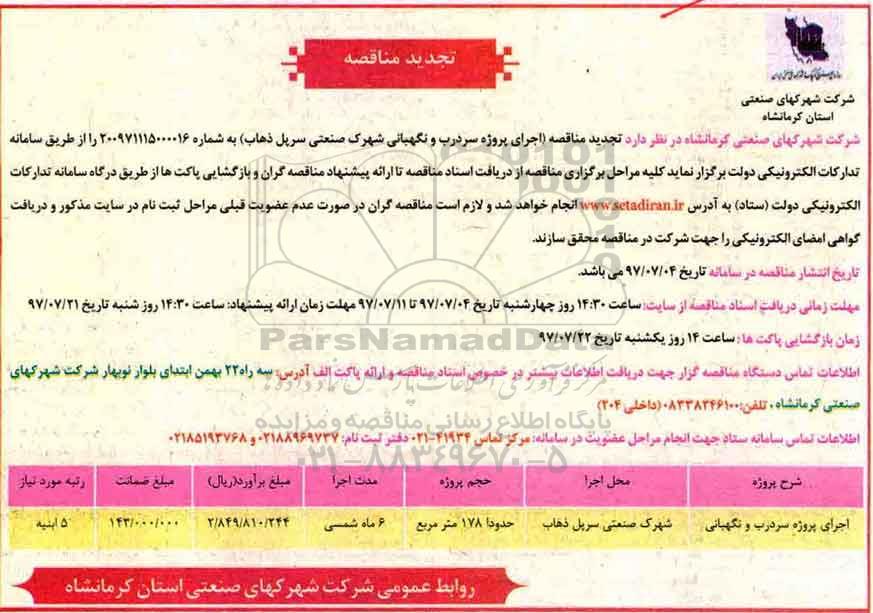 تجدید مناقصه
شرکت شهرکهای صنعتی
استان کرمانشاه
شرکت شهرکهای صنعتی کرمانشاه در نظر دارد تجدید مناقصه (اجرای پروژه سردرب و نگهبانی شهرک صنعتی سرپل ذهاب) به شماره ۲۰۰۹۷۱۱۱۵۰۰۰۰۱۶ را از طریق سامانه
تدارکات الکترونیکی دولت برگزار نماید کلیه مراحل برگزاری مناقصه از دریافت اسناد مناقصه تا ارائه پیشنهاد مناقصه گران و بازگشایی پاکت ها از طریق درگاه سامانه تدارکات
الکترونیکی دولت (ستاد) به آدرس www.setadiran.ir انجام خواهد شد و لازم است مناقصه گران در صورت عدم عضویت قبلی مراحل ثبت نام در سایت مذکور و دریافت
گواهی امضای الکترونیکی را جهت شرکت در مناقصه محقق سازند.
تاریخ انتشار مناقصه در سامانه تاریخ ۹۷/۰۷/۰۴ می باشد.
مهلت زمانی دریافت اسناد مناقصه از سایت: ساعت ۱۴:۳۰ روز چهارشنبه تاریخ ۹۷/۰۷/۰۴ تا ۹۷/۰۷/۱۱ مهلت زمان ارائه پیشنهاد: ساعت ۱۴:۳۰ روز شنبه تاریخ ۹۷/۰۷/۲۱
زمان بازگشایی پاکت ها: ساعت ۱۴ روز یکشنبه تاریخ ۹۷/۰۷/۲۲
ParsNamadData
اطلاعات تماس دستگاه مناقصه گزار جهت دریافت اطلاعات بیشتر در خصوص اسناد مناقصه و ارائه پاکت الف آدرس: سه راه ۲۲ بهمن ابتدای بلوار نوبهار شرکت شهرکهای
صنعتی کرمانشاه، تلفن: ۰۸۳۳۸۳۴۶۱۰۰ (داخلی ۲۰۴)
پایگاه اطلاع رسانی مناقصه و مزایده
اطلاعات تماس سامانه ستاد جهت انجام مراحل عضویت در سامانه: مرکز تماس ۴۱۹۳۴-۰۲۱ دفتر ثبت نام: ۰۲۱۸۸۹۶۹۷۳۷ و ۰۲۱۸۵۱۹۳۷۶۸
۰۲۱-۸۸۳۴۹۶۷۰-۵
شرح پروژه محل اجرا حجم پروژه مدت اجرا مبلغ برآورد(ریال) مبلغ ضمانت رتبه مورد نیاز
اجرای پروژه سردرب و نگهبانی شهرک صنعتی سرپل ذهاب حدودا ۱۷۸ متر مربع ۶ ماه شمسی ۲/۸۴۹/۸۱۰/۲۴۴ ۱۴۳/۰۰۰/۰۰۰ ۵ ابنیه
روابط عمومی شرکت شهرکهای صنعتی استان کرمانشاه